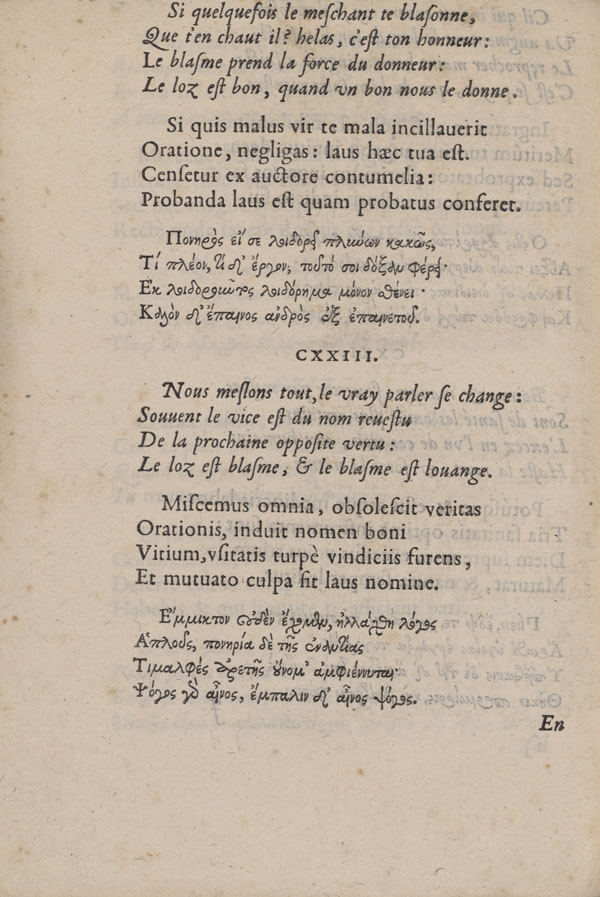 Si quelquefois le meſchant te blaſonne,
Que t'en chaut il? helas, c'eſt ton honneur:
Le blaſme prend la force du donneur:
Le loz eſt bon, quand vn bon nous le donne.
Si quis malus vir te mala incillauerit
Oratione, negligas: laus hæc tua eſt.
Cenſetur ex auctore contumelia:
Probanda laus eſt quam probatus conferet.
Πονηρὸς εἴ σε λοιδορεῖ κακῶς,
Τί πλέον, τοῦτό σοι δόξαν φέρει·
Ἐκ λοιδοροῦντος λοιδόρημα μόνον σθένει·
Καλὸν δ' ἔπαινος ἀνδρὸς ἐξ ἐπαινετοῦ.
CXXIII.
Nous meſlons tout, le vray parler ſe change:
Souuent le vice eſt du nom reueſtu
De la prochaine oppoſite vertu:
Le loz eſt blaſme, & le blaſme eſt louange.
Miſcemus omnia, obſoleſcit veritas
Orationis, induit nomen boni
Vitium, vſitatis turpè vindiciis furens,
Et mutuato culpa fit laus nomine.
Εἴμμικτον οὐδὲν ἔχομεν, ἠλλάχθη λόγος
Ἁπλοῦς, πονηρία δὲ τῆς ἐναντίας
Τιμαλφὲς ἀρετῆς οὔνομ' ἀμφιέννυται·
Ψόγος γὸ αἶνος, ἔμπαλιν δ' αἶνος ψόγος.
En